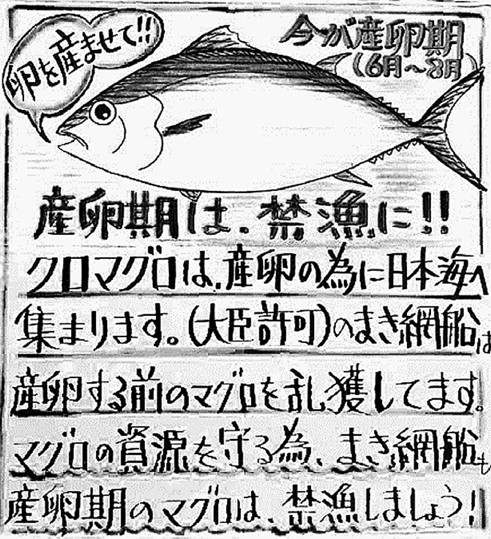 卵を産ませて!!
今が産卵期
(6月～8月)
産卵期は、禁漁に!!
クロマグロは、産卵の為に日本海へ
集まります。(大臣許可)のまき網船は
産卵する前のマグロを乱獲してます。
マグロの資源を守る為、まき網船も
産卵期のマグロは、禁漁しましょう!